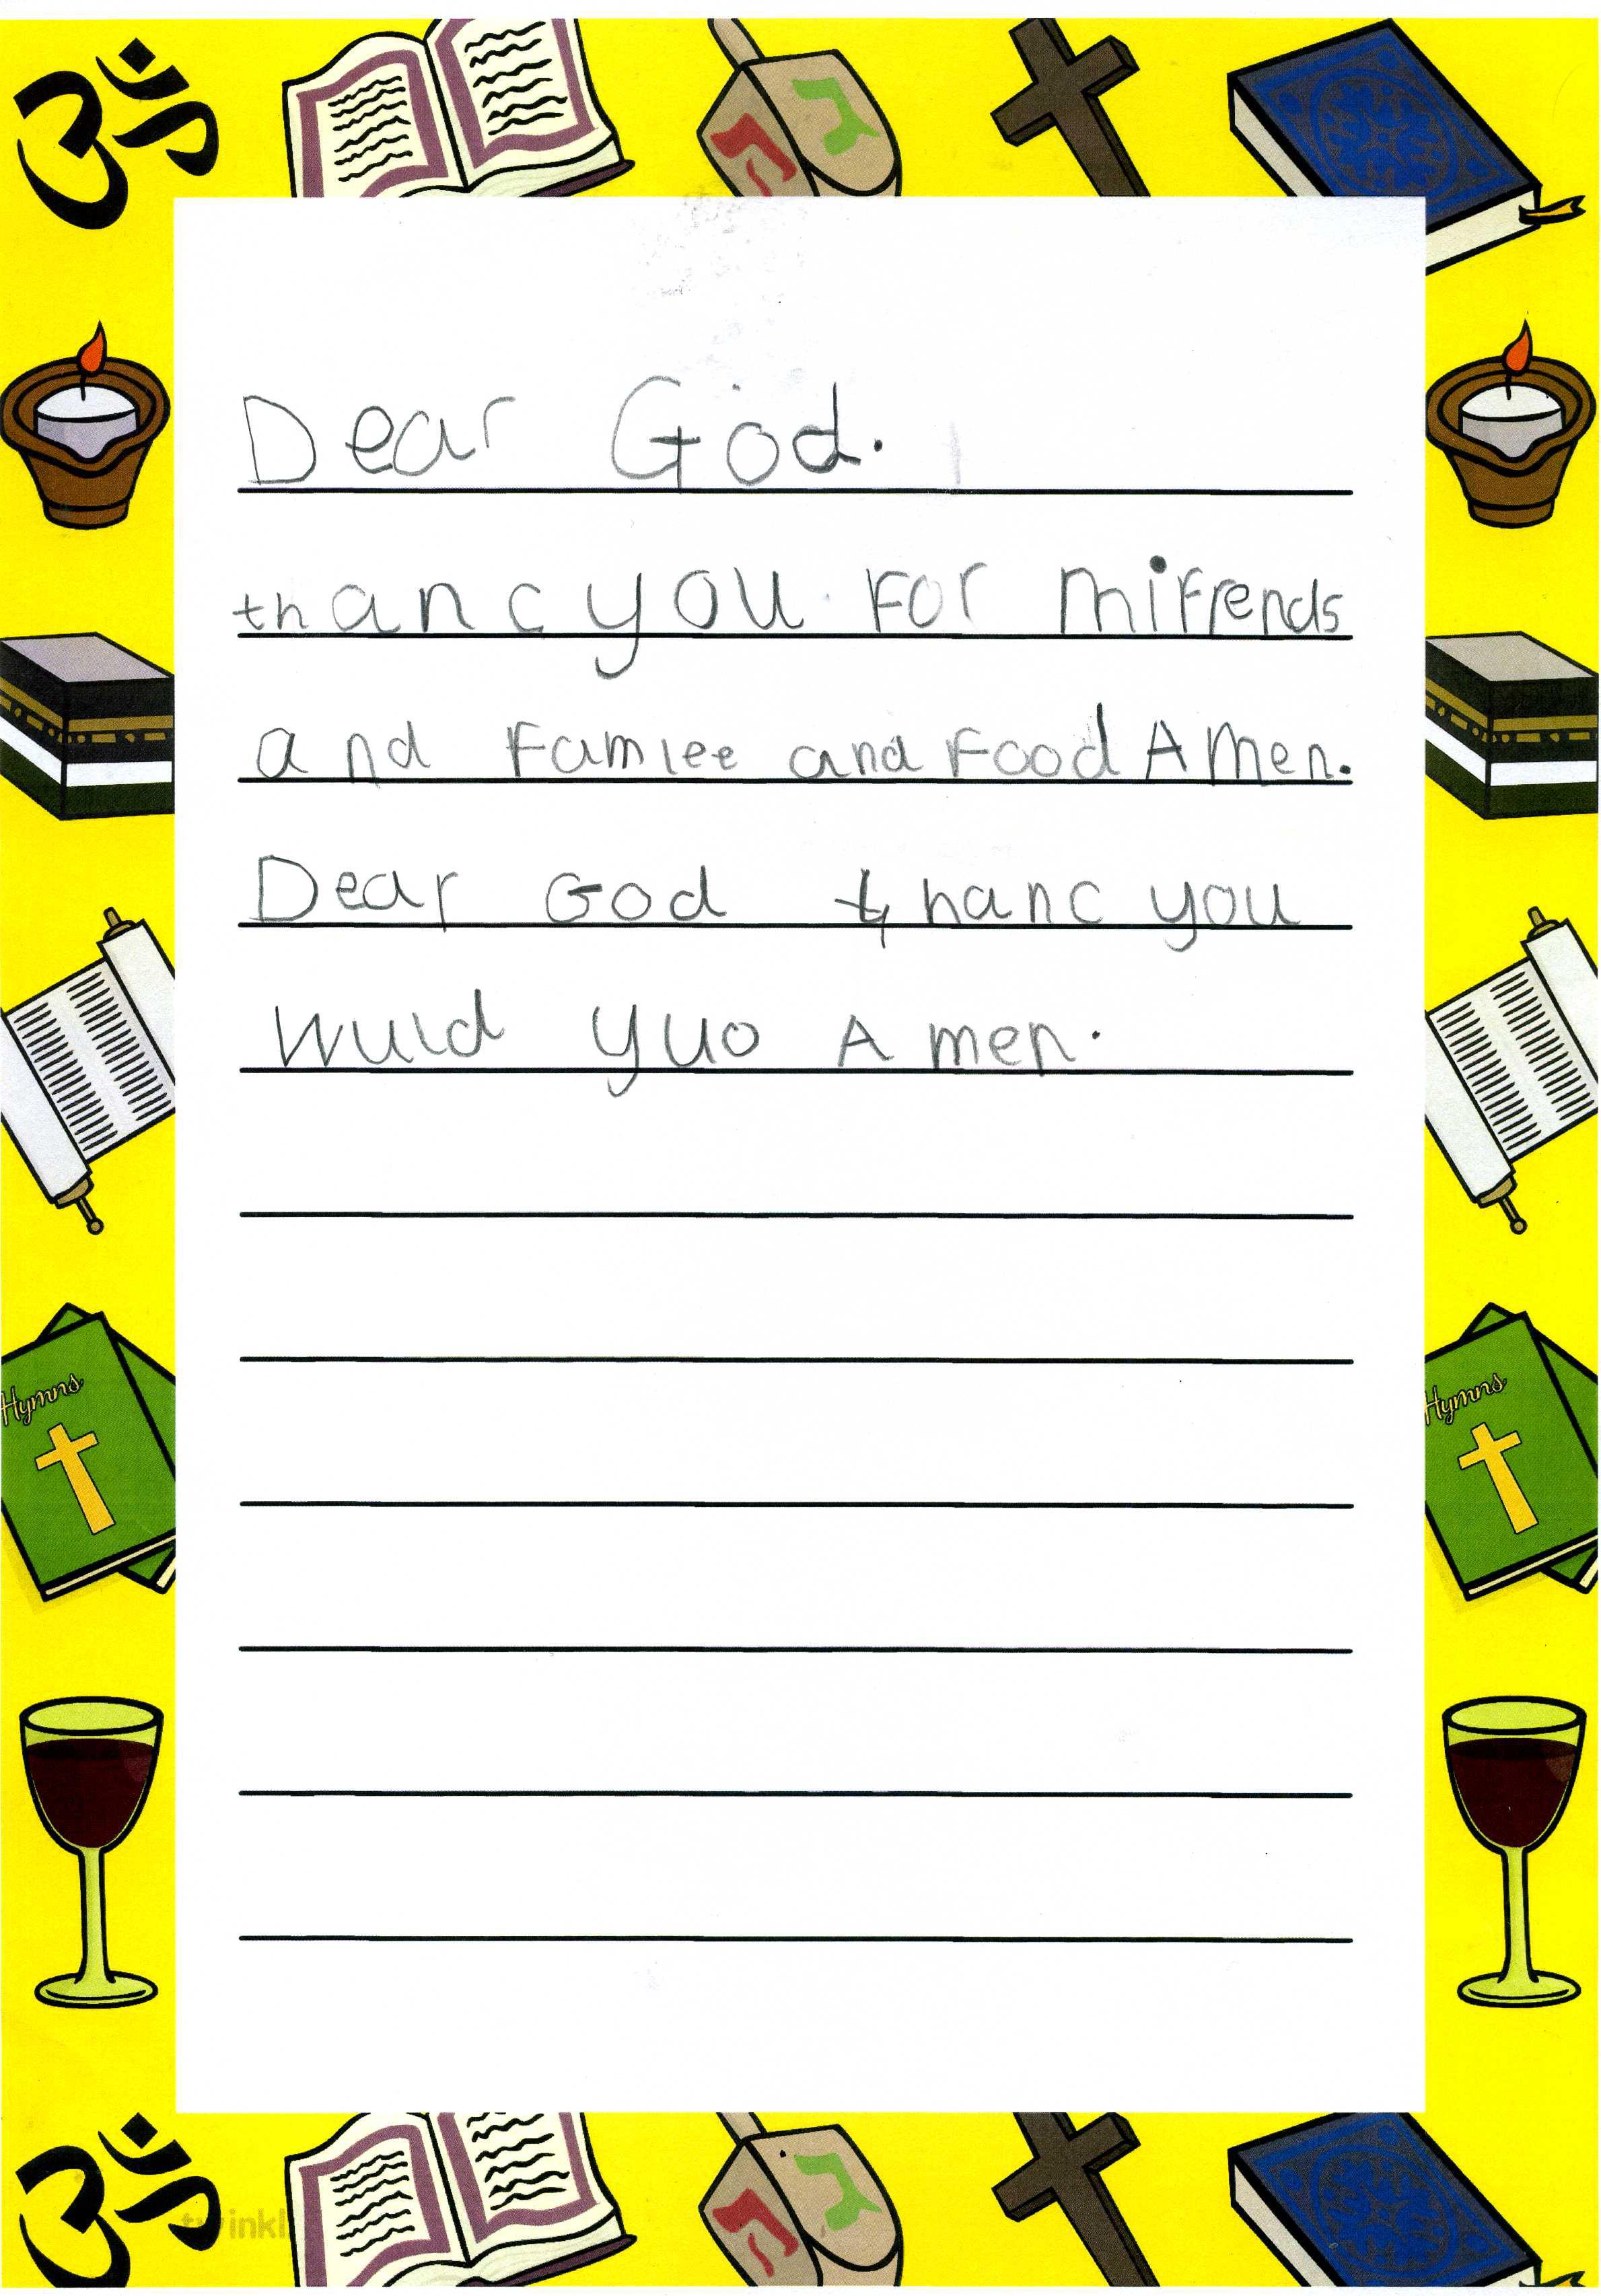 Dear God.
thanc you For mi Frends
and Famlee and Food Amen.
Dear God thanc you
wuld yuo Amen.
Hymns
Hymns
twinkl